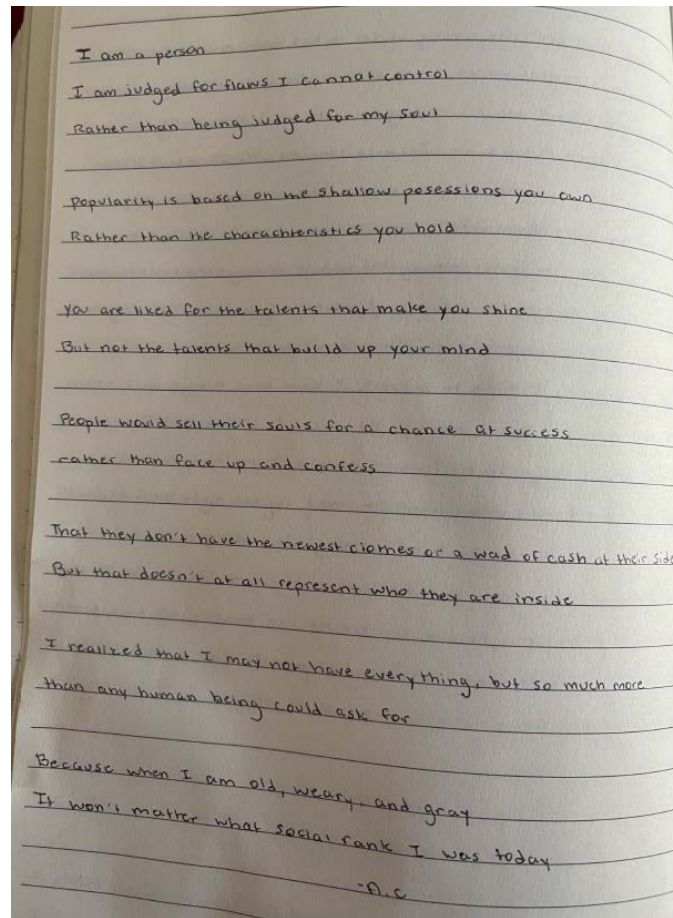 I am a person
I am judged for flaws I cannot control
Rather than being judged for my soul
Popularity is based on the shallow posessions you own
Rather than the charachteristics you hold
You are liked for the talents that make you shine
But not the talents that build up your mind
People would sell their souls for a chance at success
rather than face up and confess
That they don't have the newest clothes or a wad of cash at their side
But that doesn't at all represent who they are inside
I realized that I may not have everything, but so much more
than any human being could ask for
Because when I am old, weary, and gray
It won't matter what social rank I was today
-A.C